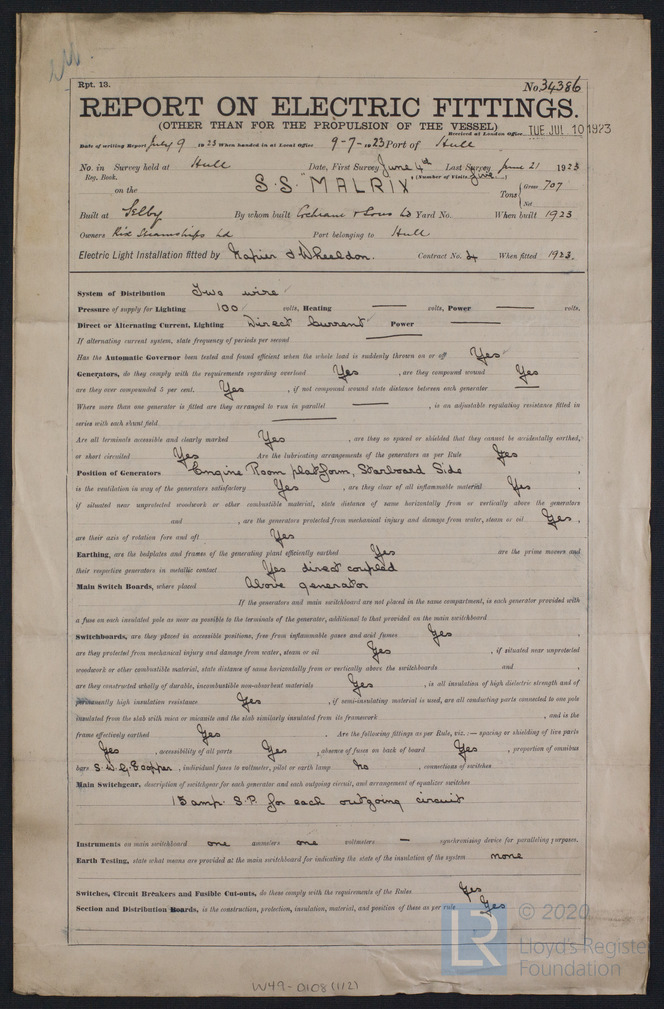 Rpt. 13.
No. 34386
REPORT ON ELECTRIC FITTINGS.
(OTHER THAN FOR THE PROPULSION OF THE VESSEL)
Received at London Office TUE JUL 10 1923
Date of writing Report July 9 1923 When handed in at Local Office 9-7-1923 Port of Hull
No. in Survey held at Hull Date, First Survey June 4th Last Survey June 21 1923
Reg. Book. (Number of Visits five)
on the S.S. "MALRIX" Tons Gross 707
Net
Built at Selby By whom built Cochrane & Sons Ld Yard No. When built 1923
Owners Rix Steamships Ld Port belonging to Hull
Electric Light Installation fitted by Napier & Wheeldon. Contract No. When fitted 1923.
System of Distribution Two wire
Pressure of supply for Lighting 100 volts, Heating — volts, Power — volts.
Direct or Alternating Current, Lighting Direct Current Power —
If alternating current system, state frequency of periods per second —
Has the Automatic Governor been tested and found efficient when the whole load is suddenly thrown on or off Yes
Generators, do they comply with the requirements regarding overload Yes, are they compound wound Yes
are they over compounded 5 per cent. Yes, if not compound wound state distance between each generator —
Where more than one generator is fitted are they arranged to run in parallel —, is an adjustable regulating resistance fitted in
series with each shunt field —
Are all terminals accessible and clearly marked Yes, are they so spaced or shielded that they cannot be accidentally earthed,
or short circuited Yes Are the lubricating arrangements of the generators as per Rule Yes
Position of Generators Engine Room platform, Starboard Side,
is the ventilation in way of the generators satisfactory Yes, are they clear of all inflammable material Yes,
if situated near unprotected woodwork or other combustible material, state distance of same horizontally from or vertically above the generators
and, are the generators protected from mechanical injury and damage from water, steam or oil Yes,
are their axis of rotation fore and aft Yes
Earthing, are the bedplates and frames of the generating plant efficiently earthed Yes are the prime movers and
their respective generators in metallic contact Yes direct coupled
Main Switch Boards, where placed Above generator
If the generators and main switchboard are not placed in the same compartment, is each generator provided with
a fuse on each insulated pole as near as possible to the terminals of the generator, additional to that provided on the main switchboard
Switchboards, are they placed in accessible positions, free from inflammable gases and acid fumes Yes,
are they protected from mechanical injury and damage from water, steam or oil Yes, if situated near unprotected
woodwork or other combustible material, state distance of same horizontally from or vertically above the switchboards and,
are they constructed wholly of durable, incombustible non-absorbent materials Yes, is all insulation of high dielectric strength and of
permanently high insulation resistance Yes, if semi-insulating material is used, are all conducting parts connected to one pole
insulated from the slab with mica or micanite and the slab similarly insulated from its framework, and is the
frame effectively earthed Yes. Are the following fittings as per Rule, viz.:— spacing or shielding of live parts
Yes, accessibility of all parts Yes, absence of fuses on back of board Yes, proportion of omnibus
bars S.W.G. Copper, individual fuses to voltmeter, pilot or earth lamp No, connections of switches
Main Switchgear, description of switchgear for each generator and each outgoing circuit, and arrangement of equalizer switches
15 amp. S.P. for each outgoing circuit
Instruments on main switchboard one ammeters one voltmeters — synchronising device for paralleling purposes.
Earth Testing, state what means are provided at the main switchboard for indicating the state of the insulation of the system none
Switches, Circuit Breakers and Fusible Cut-outs, do these comply with the requirements of the Rules Yes
Section and Distribution Boards, is the construction, protection, insulation, material, and position of these as per rule Yes
LR
© 2020
Lloyd's Register
Foundation
W49-0108 (1/2)